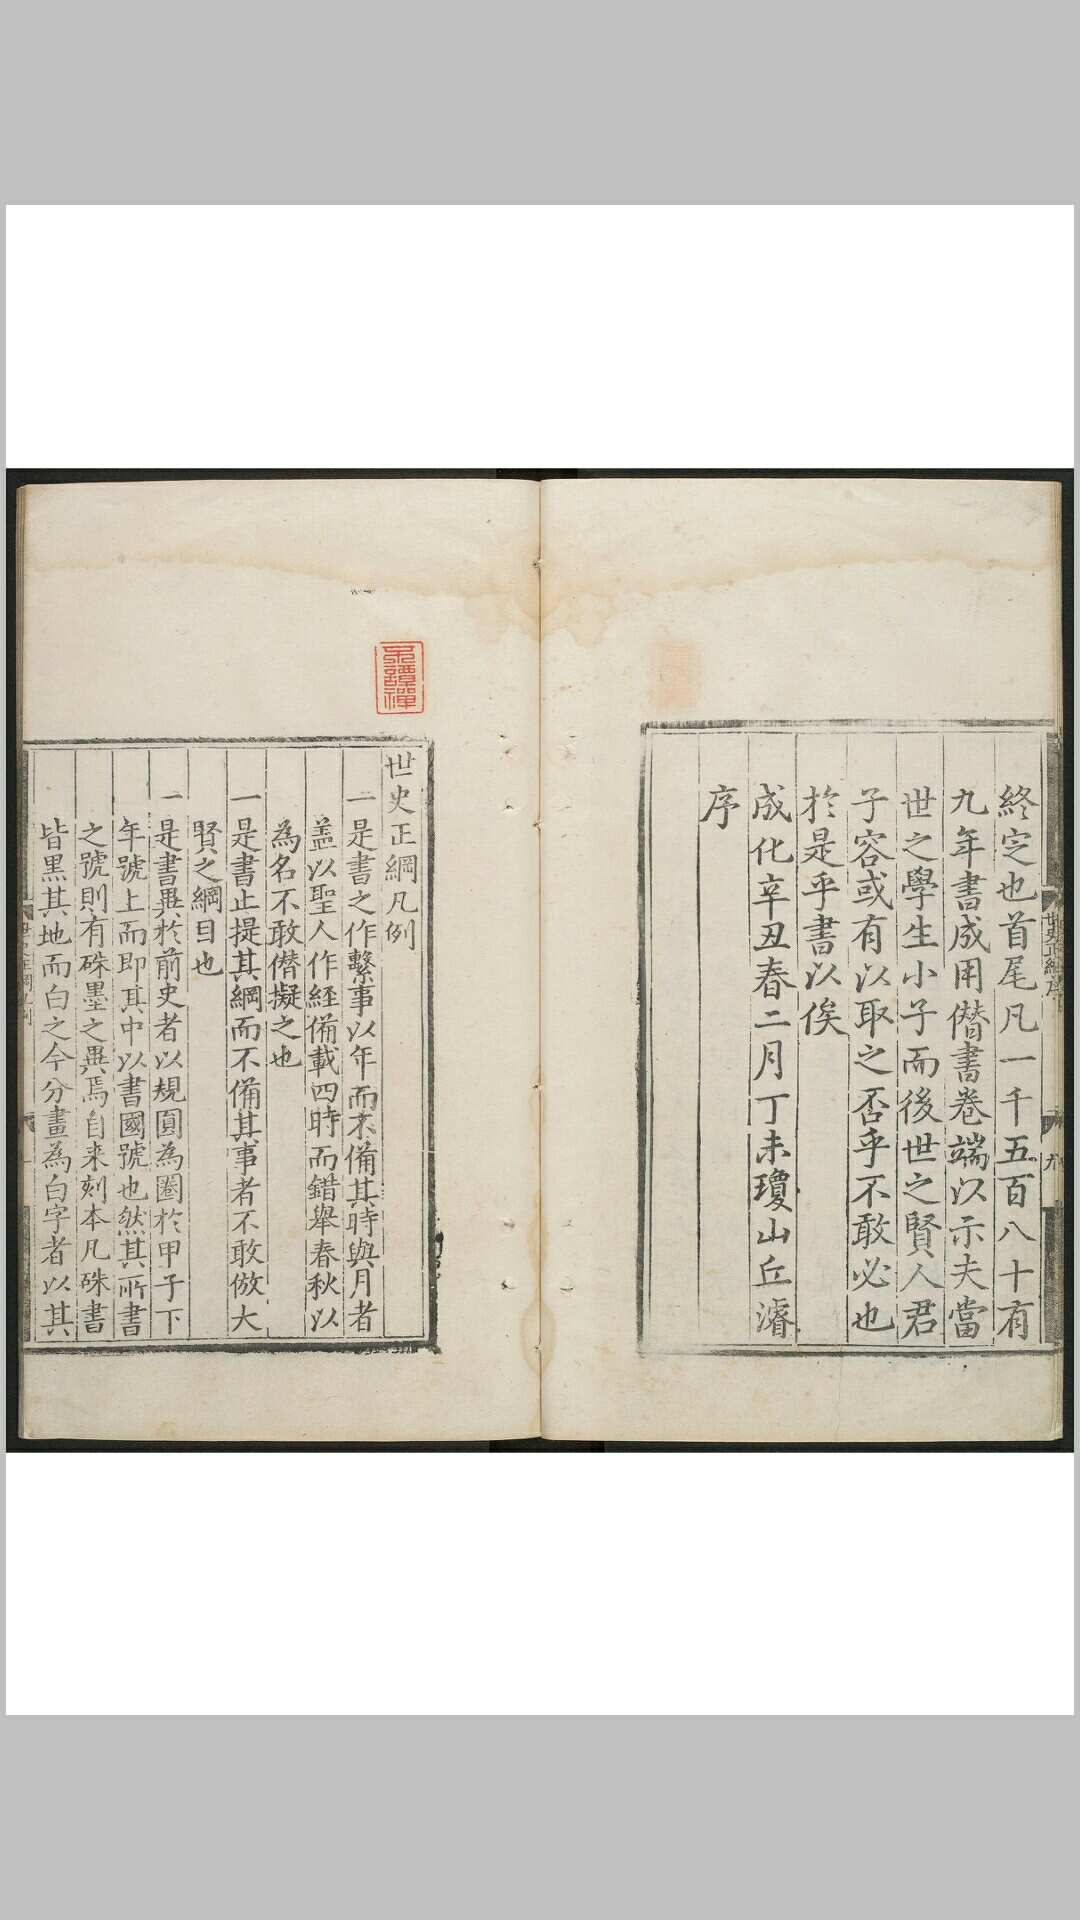 終㝎也首尾凡一千五百八十有
九年書成用僣書卷端以示夫當
世之學生小子而後世之賢人君
子容或有以取之否乎不敢必也
於是乎書以俟
成化辛丑春二月丁未瓊山丘濬
序
世史正綱凡例
一是書之作繫事以年而不備其時與月者
盖以聖人作経備載四時而錯舉春秋以
為名不敢僣擬之也
一是書止提其綱而不備其事者不敢倣大
賢之綱目也
一是書異於前史者以規圓為圈於甲子下
年號上而即其中以書國號也然其所書
之號則有硃墨之異焉自来刻本凡硃書
皆黒其地而白之今分畫為白字者以其